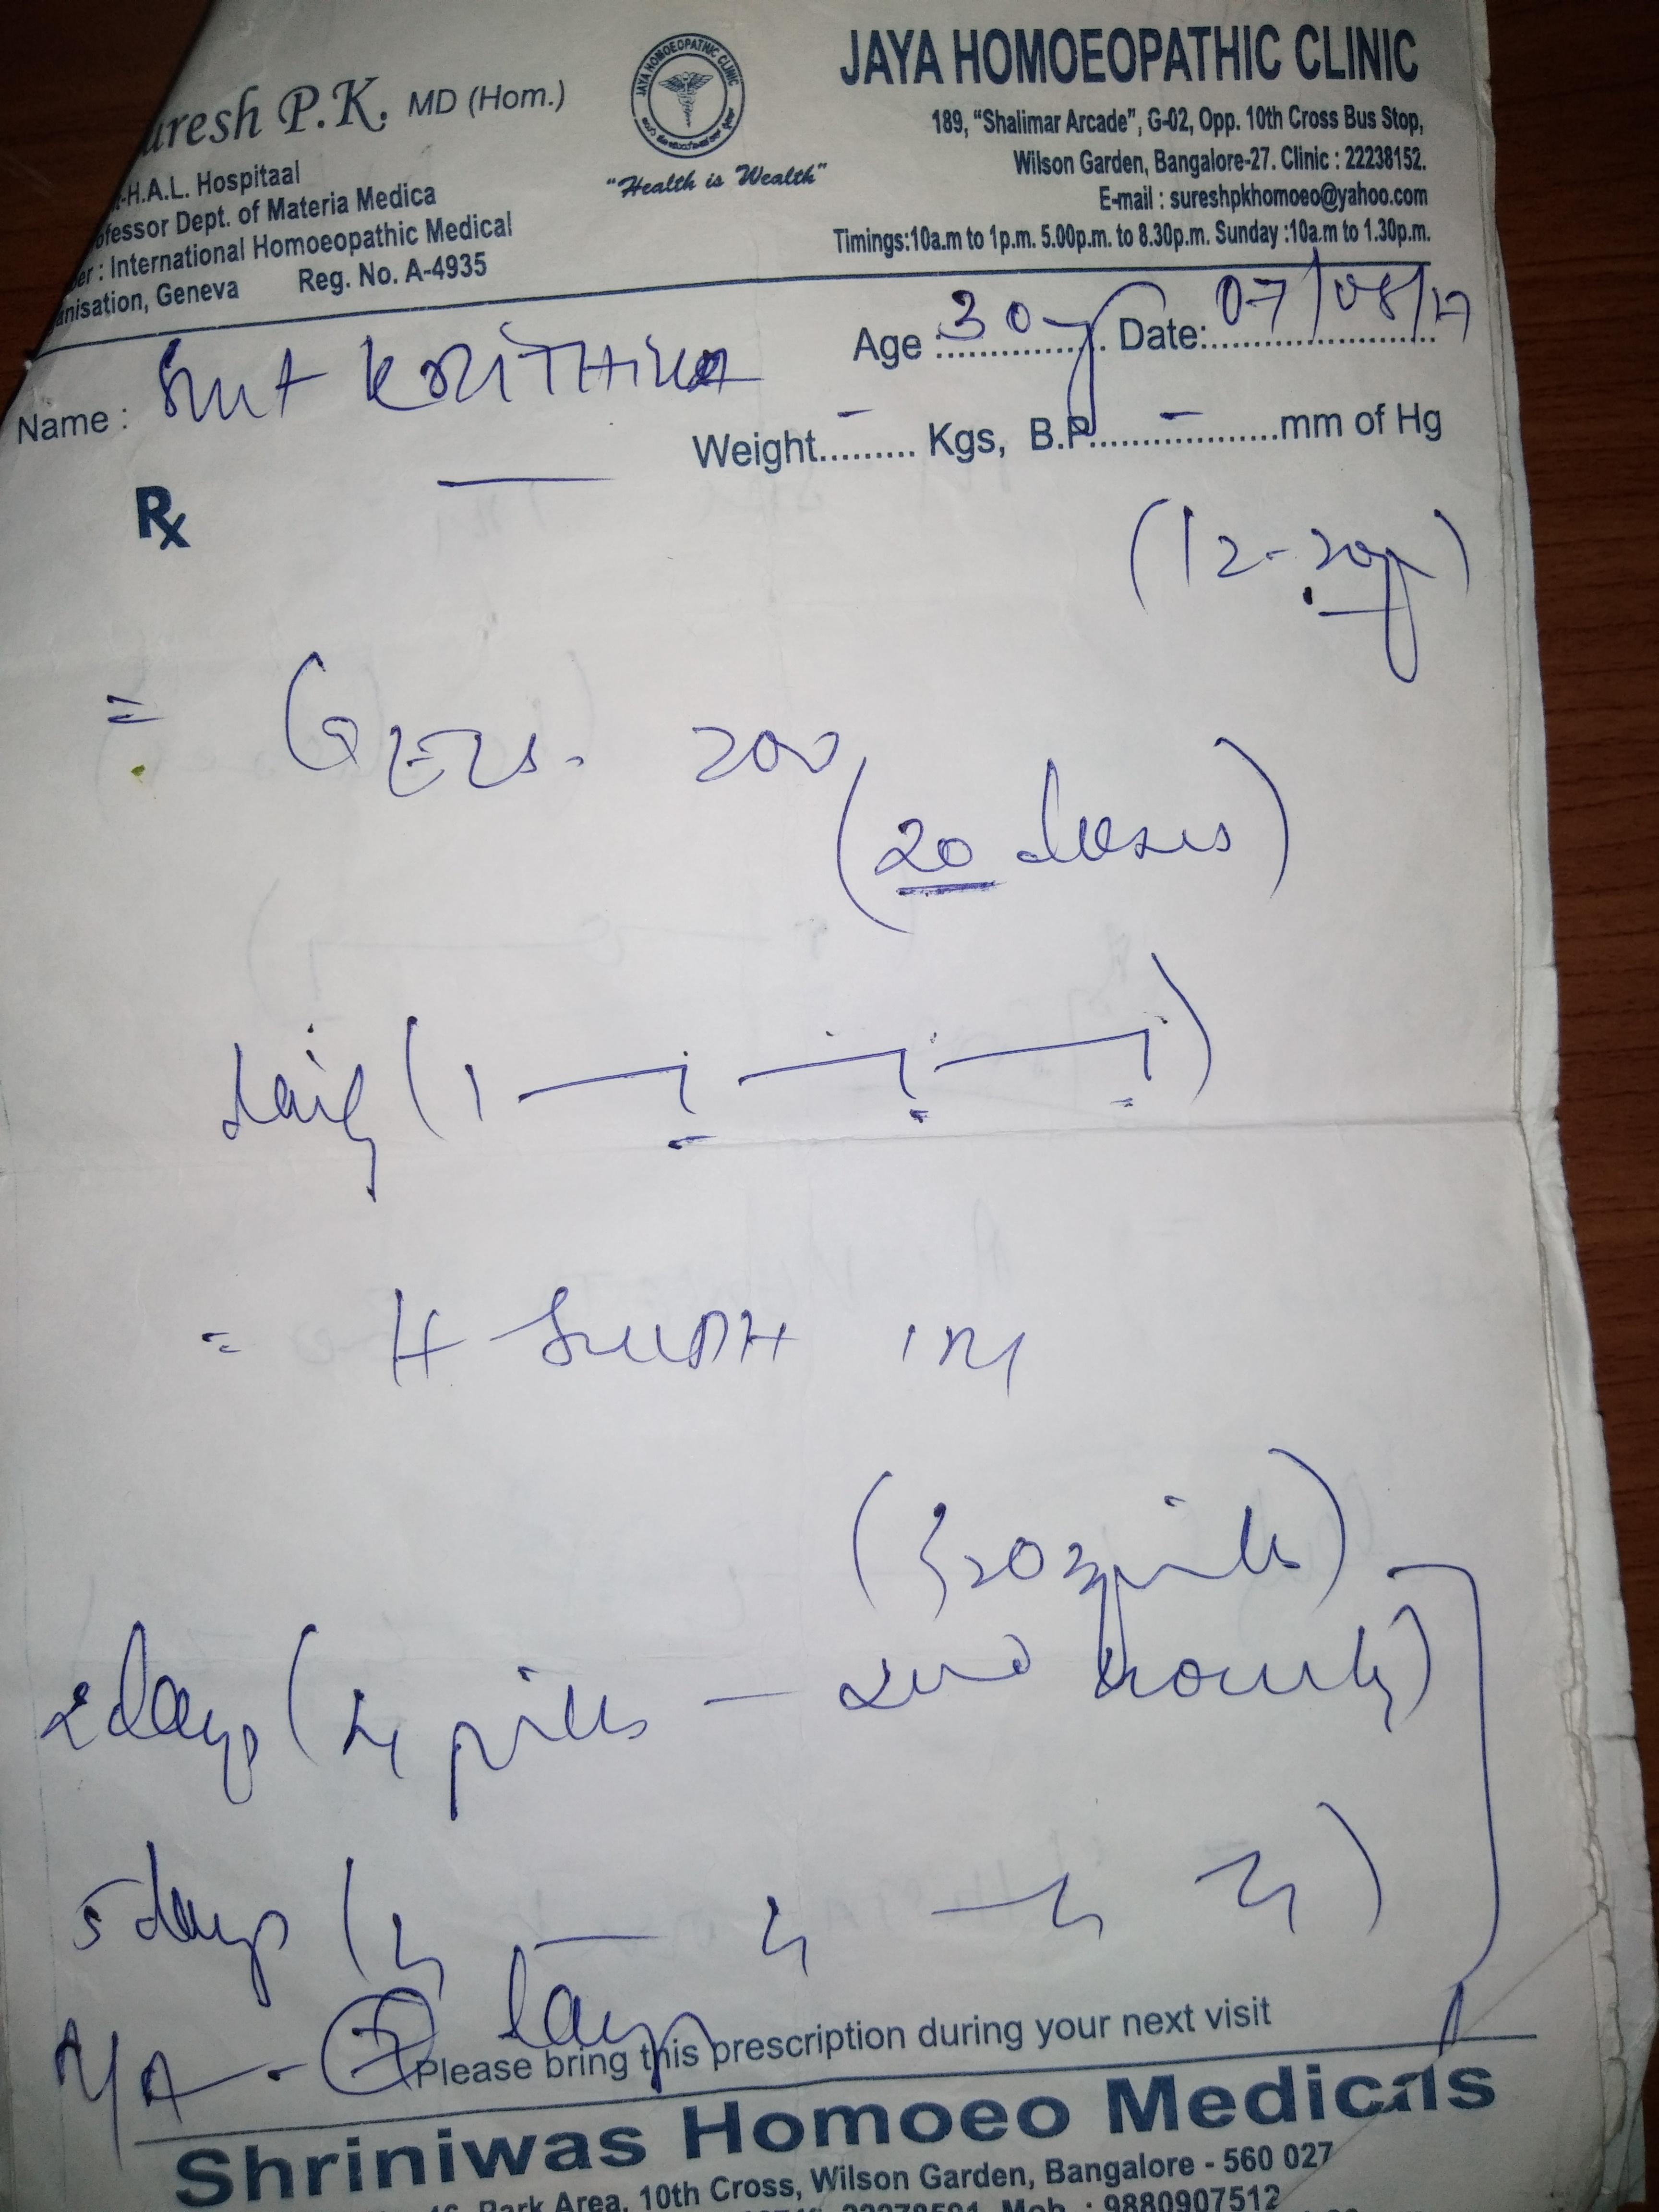 uresh P.K. MD (Hom.)
-H.A.L. Hospitaal
ofessor Dept. of Materia Medica
er : International Homoeopathic Medical
anisation, Geneva Reg. No. A-4935
JAYA HOMOEOPATHIC CLINIC
"Health is Wealth"
JAYA HOMOEOPATHIC CLINIC
189, "Shalimar Arcade", G-02, Opp. 10th Cross Bus Stop,
Wilson Garden, Bangalore-27. Clinic : 22238152.
E-mail : sureshpkhomoeo@yahoo.com
Timings:10a.m to 1p.m. 5.00p.m. to 8.30p.m. Sunday :10a.m to 1.30p.m.
Name : Smt KRITHIKA Age : 30 y Date: 07/08/17
Weight......... Kgs, B.P.....................mm of Hg
Rx
= 200
(20 doses)
daily (1 — 1 — 1 — 1)
= H SULPH 1M
pills)
2 days (4 pills — 2nd hourly)
5 days (4 — 4 — 4 4)
7 days
Please bring this prescription during your next visit
Shriniwas Homoeo Medicals
Park Area, 10th Cross, Wilson Garden, Bangalore - 560 027
Mob. : 9880907512